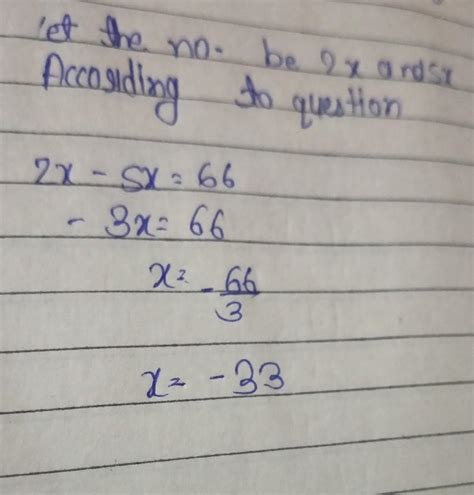 let the no. be 2x and 5x
According to question
2x - 5x = 66
- 3x = 66
x = - 66/3
x = -33